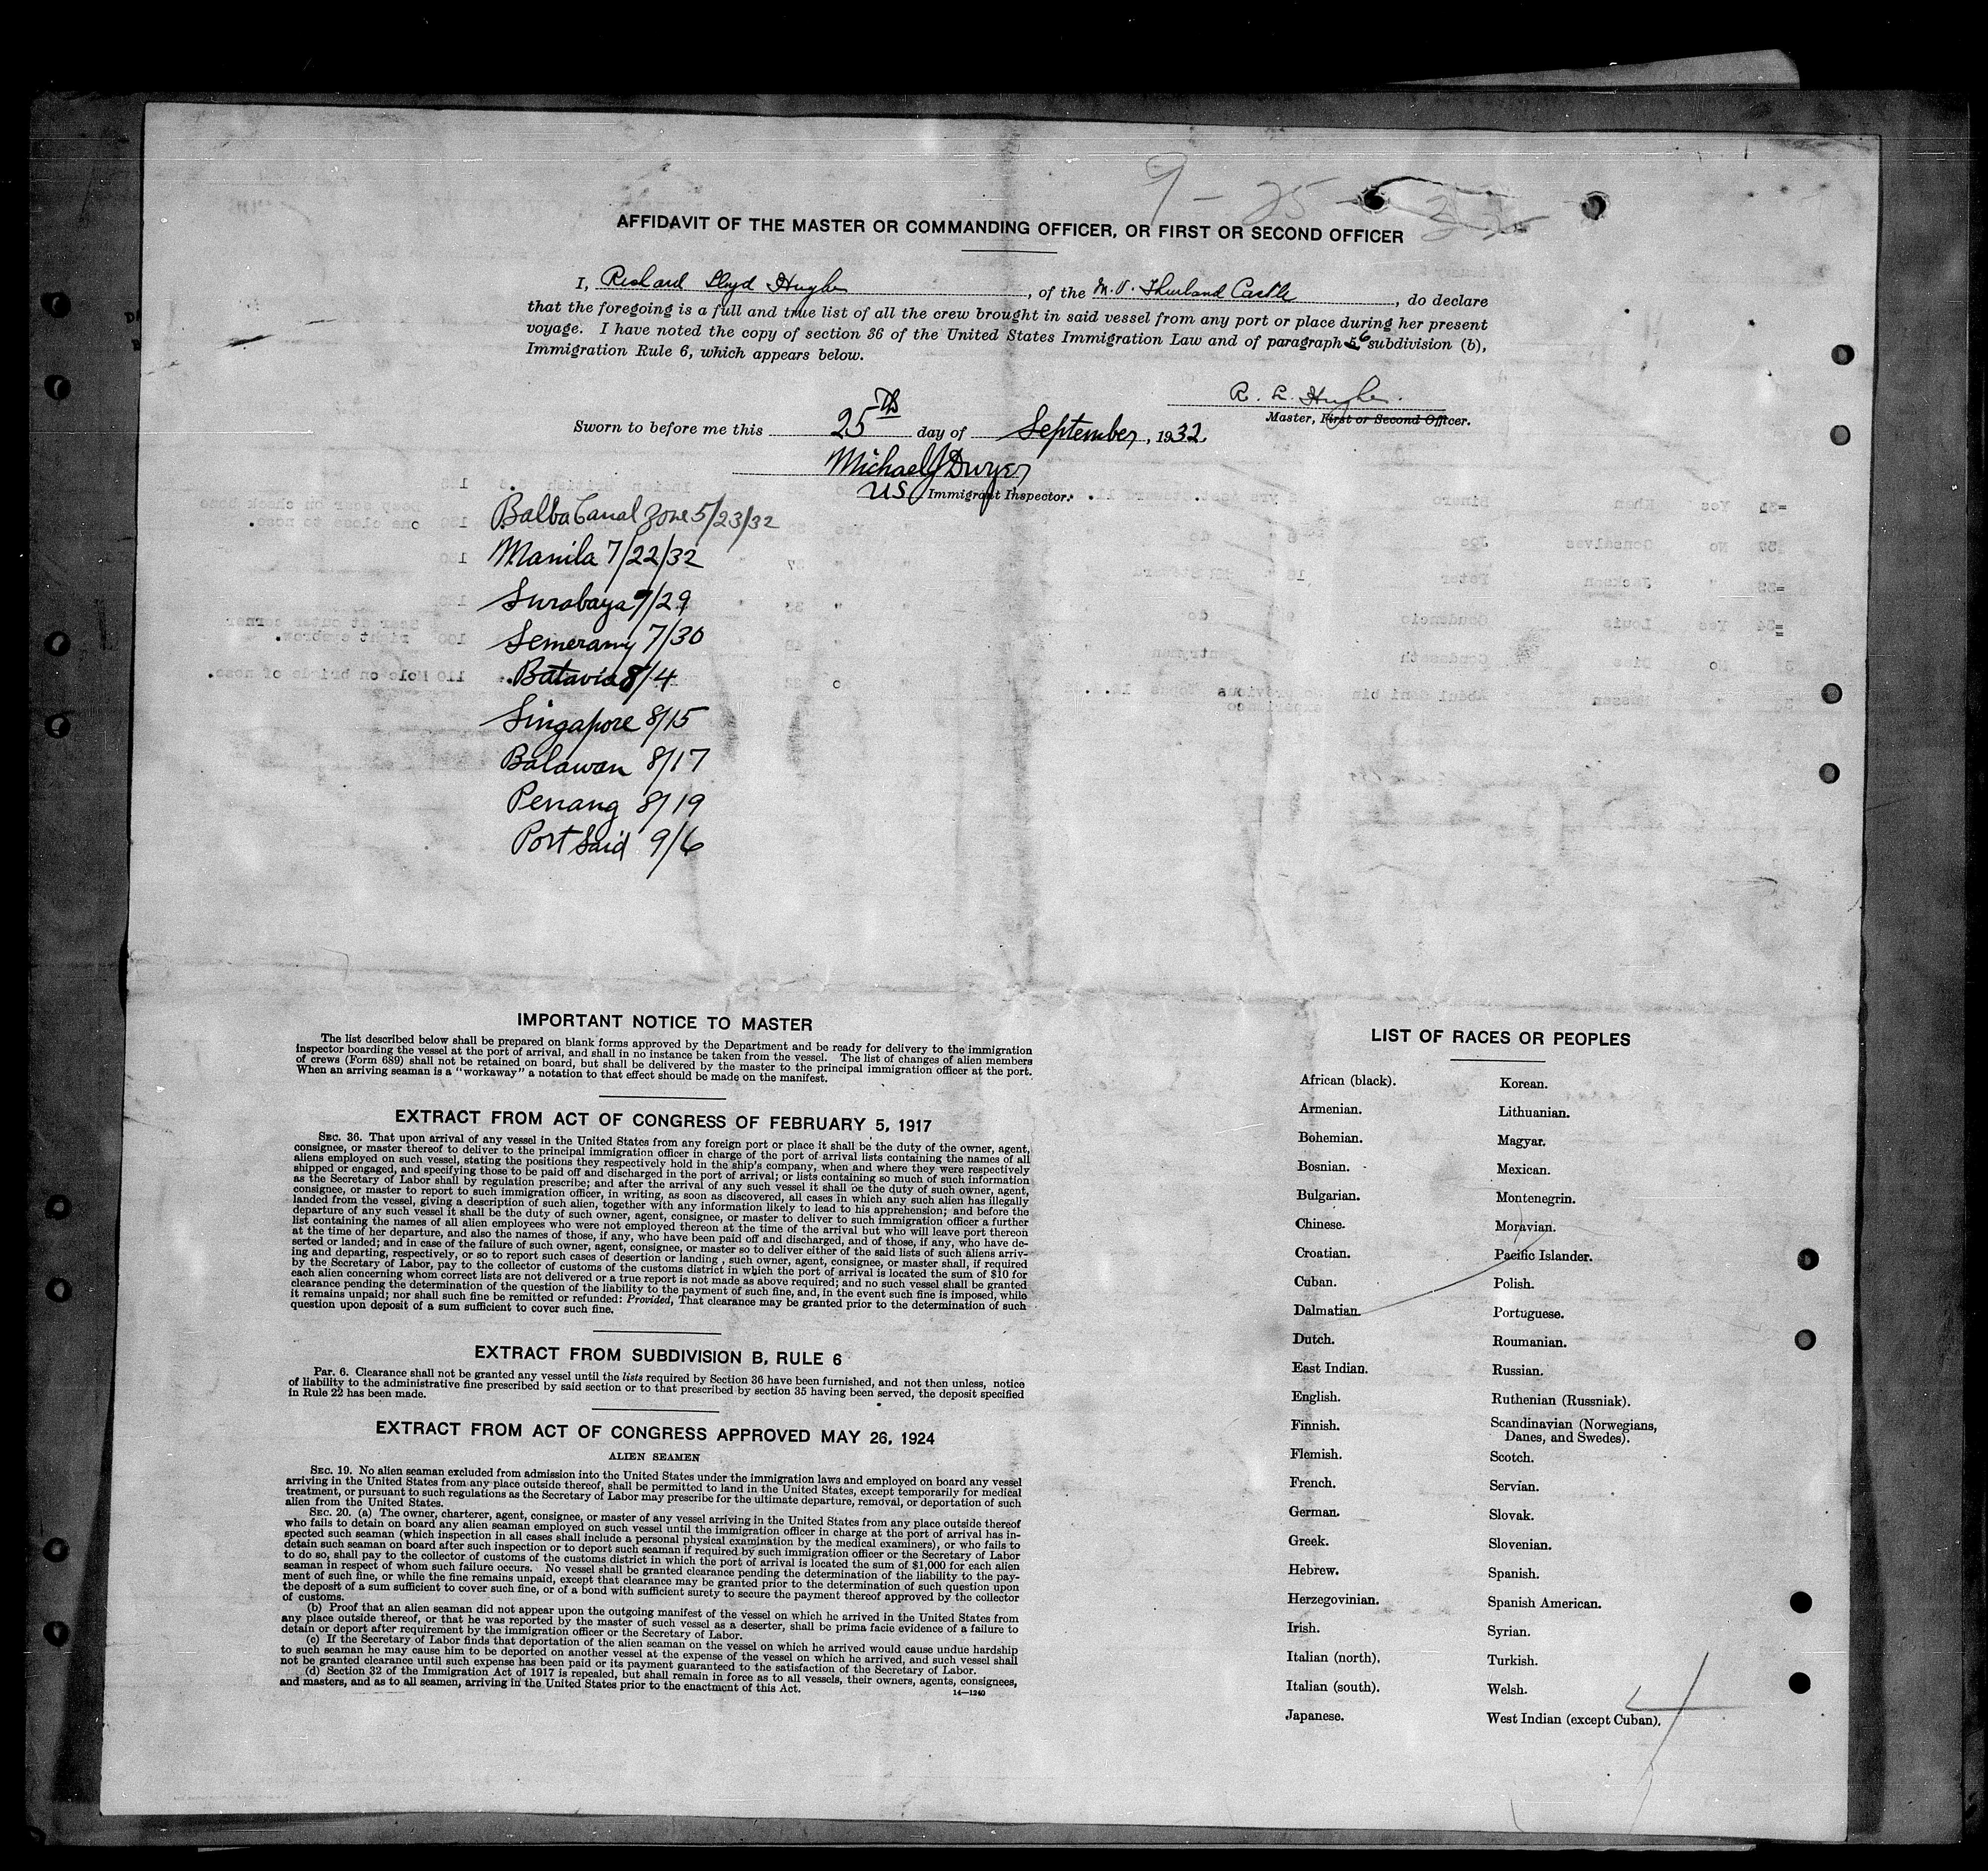 9-25-32
AFFIDAVIT OF THE MASTER OR COMMANDING OFFICER, OR FIRST OR SECOND OFFICER
I, Richard Lloyd Hughes, of the M.V. Thurland Castle, do declare
that the foregoing is a full and true list of all the crew brought in said vessel from any port or place during her present
voyage. I have noted the copy of section 36 of the United States Immigration Law and of paragraph 6 subdivision (b),
Immigration Rule 6, which appears below.
R. L. Hughes.
Master, First or Second Officer.
Sworn to before me this 25th day of September, 1932.
Michael J Dwyer
US Immigrant Inspector.
Balba Canal Zone 5/23/32
Manila 7/22/32
Surabaya 7/29
Semerang 7/30
Batavia 8/4
Singapore 8/15
Balawan 8/17
Penang 8/19
Port Said 9/6
IMPORTANT NOTICE TO MASTER
The list described below shall be prepared on blank forms approved by the Department and be ready for delivery to the immigration
inspector boarding the vessel at the port of arrival, and shall in no instance be taken from the vessel. The list of changes of alien members
of crews (Form 689) shall not be retained on board, but shall be delivered by the master to the principal immigration officer at the port.
When an arriving seaman is a "workaway" a notation to that effect should be made on the manifest.
EXTRACT FROM ACT OF CONGRESS OF FEBRUARY 5, 1917
SEC. 36. That upon arrival of any vessel in the United States from any foreign port or place it shall be the duty of the owner, agent,
consignee, or master thereof to deliver to the principal immigration officer in charge of the port of arrival lists containing the names of all
aliens employed on such vessel, stating the positions they respectively hold in the ship's company, when and where they were respectively
shipped or engaged, and specifying those to be paid off and discharged in the port of arrival; or lists containing so much of such information
as the Secretary of Labor shall by regulation prescribe; and after the arrival of any such vessel it shall be the duty of such owner, agent,
consignee, or master to report to such immigration officer, in writing, as soon as discovered, all cases in which any such alien has illegally
landed from the vessel, giving a description of such alien, together with any information likely to lead to his apprehension; and before the
departure of any such vessel it shall be the duty of such owner, agent, consignee, or master to deliver to such immigration officer a further
list containing the names of all alien employees who were not employed thereon at the time of the arrival but who will leave port thereon
at the time of her departure, and also the names of those, if any, who have been paid off and discharged, and of those, if any, who have de-
serted or landed; and in case of the failure of such owner, agent, consignee, or master so to deliver either of the said lists of such aliens arriv-
ing and departing, respectively, or so to report such cases of desertion or landing, such owner, agent, consignee, or master shall, if required
by the Secretary of Labor, pay to the collector of customs of the customs district in which the port of arrival is located the sum of $10 for
each alien concerning whom correct lists are not delivered or a true report is not made as above required; and no such vessel shall be granted
clearance pending the determination of the question of the liability to the payment of such fine, and, in the event such fine is imposed, while
it remains unpaid; nor shall such fine be remitted or refunded: Provided, That clearance may be granted prior to the determination of such
question upon deposit of a sum sufficient to cover such fine.
EXTRACT FROM SUBDIVISION B, RULE 6
Par. 6. Clearance shall not be granted any vessel until the lists required by Section 36 have been furnished, and not then unless, notice
of liability to the administrative fine prescribed by said section or to that prescribed by section 35 having been served, the deposit specified
in Rule 22 has been made.
EXTRACT FROM ACT OF CONGRESS APPROVED MAY 26, 1924
ALIEN SEAMEN
SEC. 19. No alien seaman excluded from admission into the United States under the immigration laws and employed on board any vessel
arriving in the United States from any place outside thereof, shall be permitted to land in the United States, except temporarily for medical
treatment, or pursuant to such regulations as the Secretary of Labor may prescribe for the ultimate departure, removal, or deportation of such
alien from the United States.
SEC. 20. (a) The owner, charterer, agent, consignee, or master of any vessel arriving in the United States from any place outside thereof
who fails to detain on board any alien seaman employed on such vessel until the immigration officer in charge at the port of arrival has in-
spected such seaman (which inspection in all cases shall include a personal physical examination by the medical examiners), or who fails to
detain such seaman on board after such inspection or to deport such seaman if required by such immigration officer or the Secretary of Labor
to do so, shall pay to the collector of customs of the customs district in which the port of arrival is located the sum of $1,000 for each alien
seaman in respect of whom such failure occurs. No vessel shall be granted clearance pending the determination of the liability to the pay-
ment of such fine, or while the fine remains unpaid, except that clearance may be granted prior to the determination of such question upon
the deposit of a sum sufficient to cover such fine, or of a bond with sufficient surety to secure the payment thereof approved by the collector
of customs.
(b) Proof that an alien seaman did not appear upon the outgoing manifest of the vessel on which he arrived in the United States from
any place outside thereof, or that he was reported by the master of such vessel as a deserter, shall be prima facie evidence of a failure to
detain or deport after requirement by the immigration officer or the Secretary of Labor.
(c) If the Secretary of Labor finds that deportation of the alien seaman on the vessel on which he arrived would cause undue hardship
to such seaman he may cause him to be deported on another vessel at the expense of the vessel on which he arrived, and such vessel shall
not be granted clearance until such expense has been paid or its payment guaranteed to the satisfaction of the Secretary of Labor.
(d) Section 32 of the Immigration Act of 1917 is repealed, but shall remain in force as to all vessels, their owners, agents, consignees,
and masters, and as to all seamen, arriving in the United States prior to the enactment of this Act.
14—1240
LIST OF RACES OR PEOPLES
African (black).
Armenian.
Bohemian.
Bosnian.
Bulgarian.
Chinese.
Croatian.
Cuban.
Dalmatian.
Dutch.
East Indian.
English.
Finnish.
Flemish.
French.
German.
Greek.
Hebrew.
Herzegovinian.
Irish.
Italian (north).
Italian (south).
Japanese.
Korean.
Lithuanian.
Magyar.
Mexican.
Montenegrin.
Moravian.
Pacific Islander.
Polish.
Portuguese.
Roumanian.
Russian.
Ruthenian (Russniak).
Scandinavian (Norwegians,
Danes, and Swedes).
Scotch.
Servian.
Slovak.
Slovenian.
Spanish.
Spanish American.
Syrian.
Turkish.
Welsh.
West Indian (except Cuban).
4